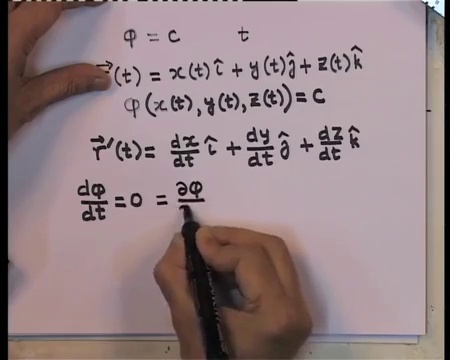 φ = c t
(t) = x(t) î + y(t) ĵ + z(t) k̂
φ(x(t), y(t), z(t)) = c
r⃗'(t) = dx/dt î + dy/dt ĵ + dz/dt k̂
dφ/dt = 0 = ∂φ/